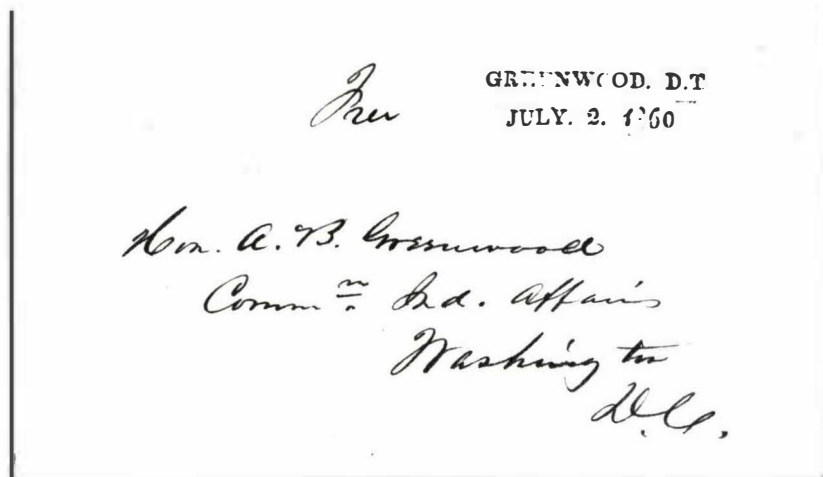 Free
GREENWOOD. D.T
JULY. 2. 1860
Hon. A. B. Greenwood
Commr. Ind. Affairs
Washington
D.C.